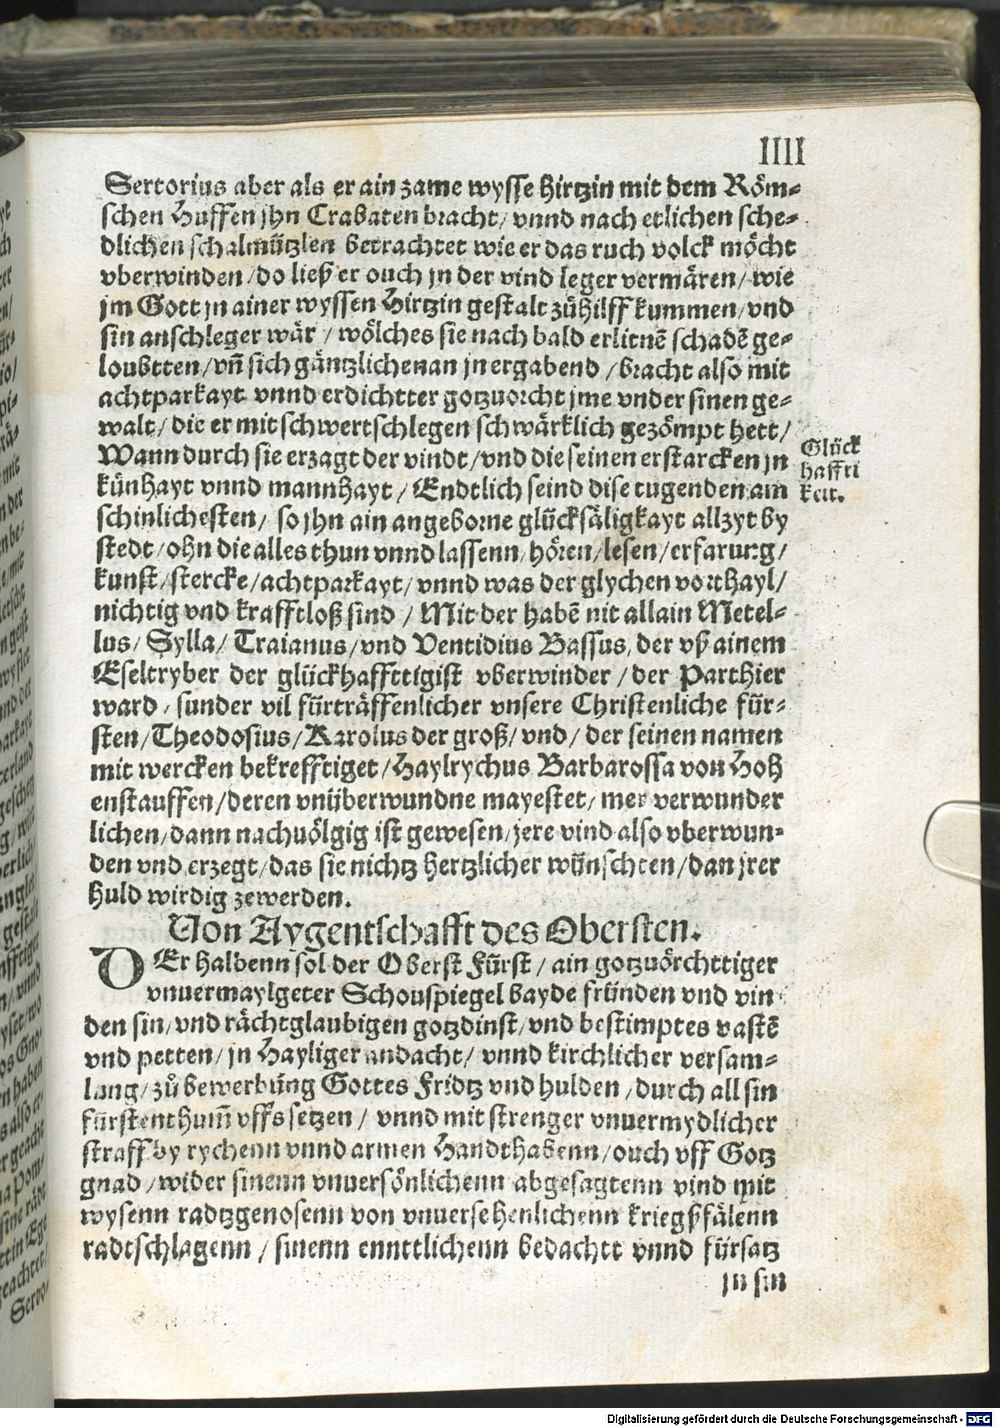 IIII
Sertorius aber als er ain zame wysse hirtzin mit dem Röm⸗
schen Huffen jhn Crabaten bracht/ vnnd nach etlichen sche⸗
dlichen schalmützlen betrachtet wie er das ruch volck möcht
vberwinden/do ließ er ouch jn der vind leger vermären/ wie
jm Gott jn ainer wyssen Hirtzin gestalt zůhilff kummen/vnd
sin anschleger wär / wölches sie nach bald erlitnē schadē ge⸗
loubtten/vn̄ sich gäntzlichenan jn ergabend /bracht also mit
achtparkayt vnnd erdichtter gotzuorcht jme vnder sinen ge⸗
walt/ die er mit schwertschlegen schwärklich gezömpt hett/
Wann durch sie erzagt der vindt/vnd die seinen erstarcken jn
künhayt vnnd mannhayt / Endtlich seind dise tugenden am
schinlichesten/ so jhn ain angeborne glücksäligkayt allzyt by
stedt/ohn die alles thun vnnd lassenn/hören/lesen/erfarung/
kunst/stercke/achtparkayt/vnnd was der glychen vorthayl/
nichtig vnd krafftloß sind / Mit der habē nit allain Metel⸗
lus/ Sylla/ Traianus/vnd Ventidius Bassus, der vß ainem
Eseltryber der glückhaffttigist vberwinder /der Parthier
ward/sunder vil fürträffenlicher vnsere Christenliche für⸗
sten/Theodosius/Karolus der groß/vnd/ der seinen namen
mit wercken bekrefftiget/Haylrychus Barbarossa von Hoh
enstauffen/deren vnüberwundne mayestet/ mer verwunder
lichen/dann nachuölgig ist gewesen/jere vind also vberwun⸗
den vnd erzegt/das sie nichtz hertzlicher wünschten/dan jrer
huld wirdig zewerden.
Glück
haffti
keit.
Von Aygentschafft des Obersten.
DEr halbenn sol der Oberst Fürst / ain gotzuörchttiger
vnuermaylgeter Schouspiegel bayde fründen vnd vin
den sin/vnd rächtglaubigen gotzdinst/vnd bestimptes vastē
vnd petten/ jn Hayliger andacht/ vnnd kirchlicher versam⸗
lang/zů bewerbung Gottes Fridtz vnd hulden /durch all sin
fürstenthum̄ vffssetzen / vnnd mit strenger vnuermydlicher
straff by rychenn vnnd armen Handthabenn/ouch vff Gotz
gnad /wider sinenn vnuersönlichenn abgesagtenn vind mit
wysenn radtzgenosenn von vnuersehenlichenn kriegßfälenn
radtschlagenn / sinenn ennttlichenn bedachtt vnnd fürsatz
jn sin
Digitalisierung gefördert durch die Deutsche Forschungsgemeinschaft - DFG